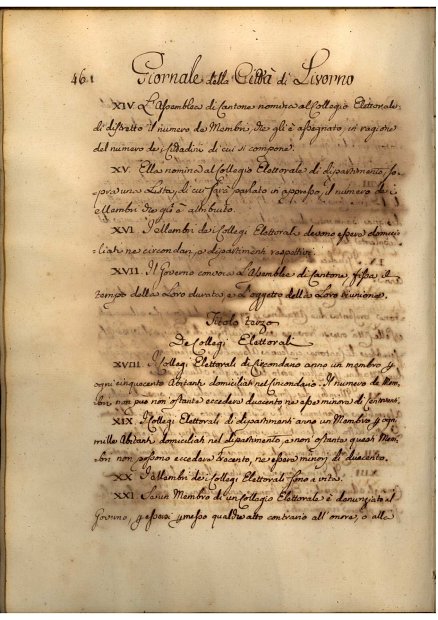 461
Giornale della Città di Livorno
XIV. L'Assemblea di Cantone nomina al Collegio Elettorale
di distretto il numero de Membri, che gli è assegnato, in ragione
del numero de Cittadini di cui si compone.
XV. Ella nomina al Collegio Elettorale di dipartimento, so-
pra una Lista, di cui sarà parlato in appresso, il numero de i
Membri che gli è attribuito.
XVI. I Membri dei Collegi Elettorali devono essere domici-
liati ne circondari, e dipartimenti respettivi.
XVII. Il Governo convoca l'Assemblee di Cantone, fissa il
tempo della Loro durata e L'oggetto della Loro riunione.
Titolo terzo
De Collegi Elettorali
XVIII. I Collegi Elettorali di Circondario anno un membro p
ogni cinquecento Abitanti domiciliati nel Circondario. Il numero de Mem-
bri non può non ostante eccedere duecento ne essere minore di
XIX. I Collegi Elettorali di dipartimenti anno un Membro p ogni
mille Abitanti domiciliati nel dipartimento, e non ostante questi Mem-
bri non possono eccedere trecento, ne essere minori di duecento.
XX. I Membri dei Collegi Elettorali sono a vita.
XXI. Se un Membro di un Collegio Elettorale è denunziato al
Governo, p essersi permesso qualche atto contrario all'onore, o alla